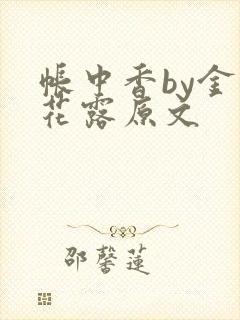 帐中香by金
花露原文
邵馨莲